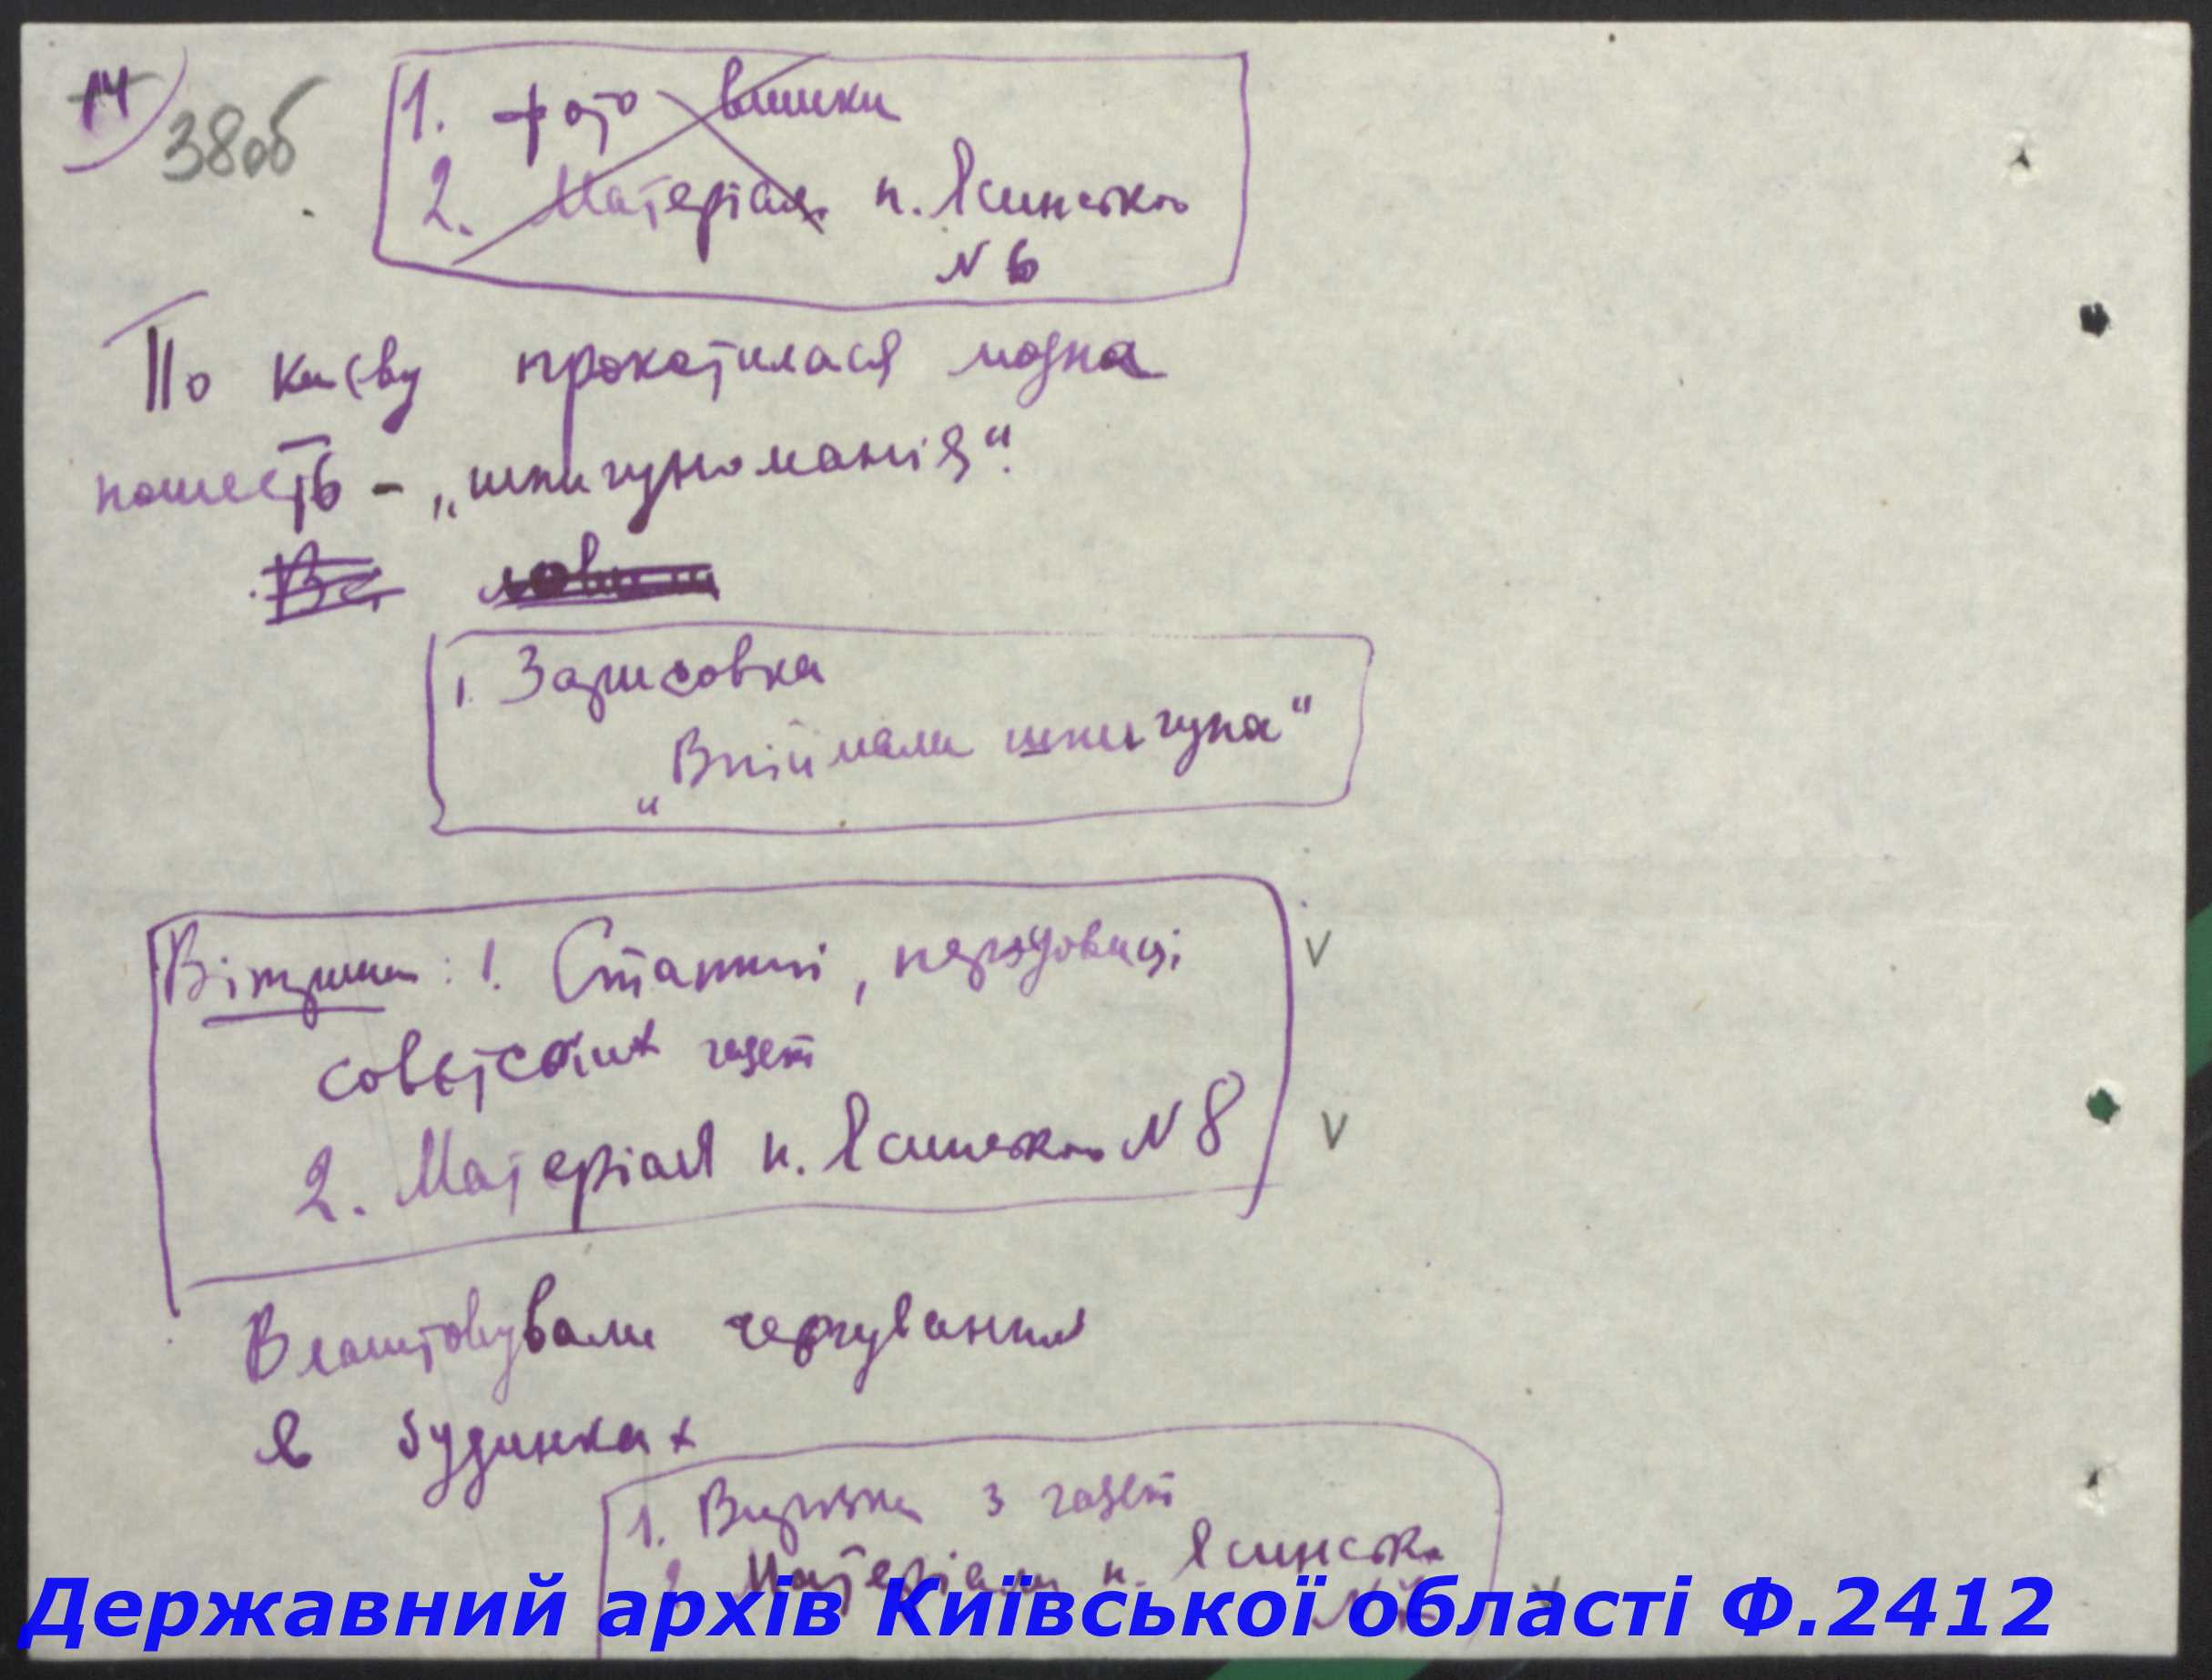 14)
38об
1. фото вишки
2. Матеріал п. Ясинсько
N 6
По Києву прокотилася модна
пошесть – „шпигуноманія“.
Всі ловили
1. Зарисовка
„Впіймали шпигуна“
Вітрина: 1. Статті, передовиці
совєтских газет
2. Матеріал п. Ясинсько N 8
V
V
Влаштовували чергування
в будинках
1. Вирізки з газет
2. Матеріали п. Ясинсько
Державний архів Київської області Ф.2412